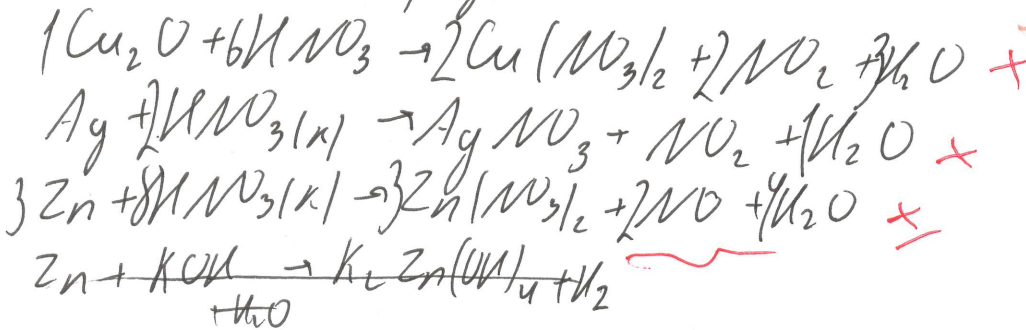 1Cu₂O + 6HNO₃ → 2Cu(NO₃)₂ + 2NO₂ + 3H₂O +
Ag + 2HNO₃(к) → AgNO₃ + NO₂ + 1H₂O +
3Zn + 8HNO₃(к) → 3Zn(NO₃)₂ + 2NO + 4H₂O ±
Zn + KOH → K₂Zn(OH)₄ + H₂
+H₂O